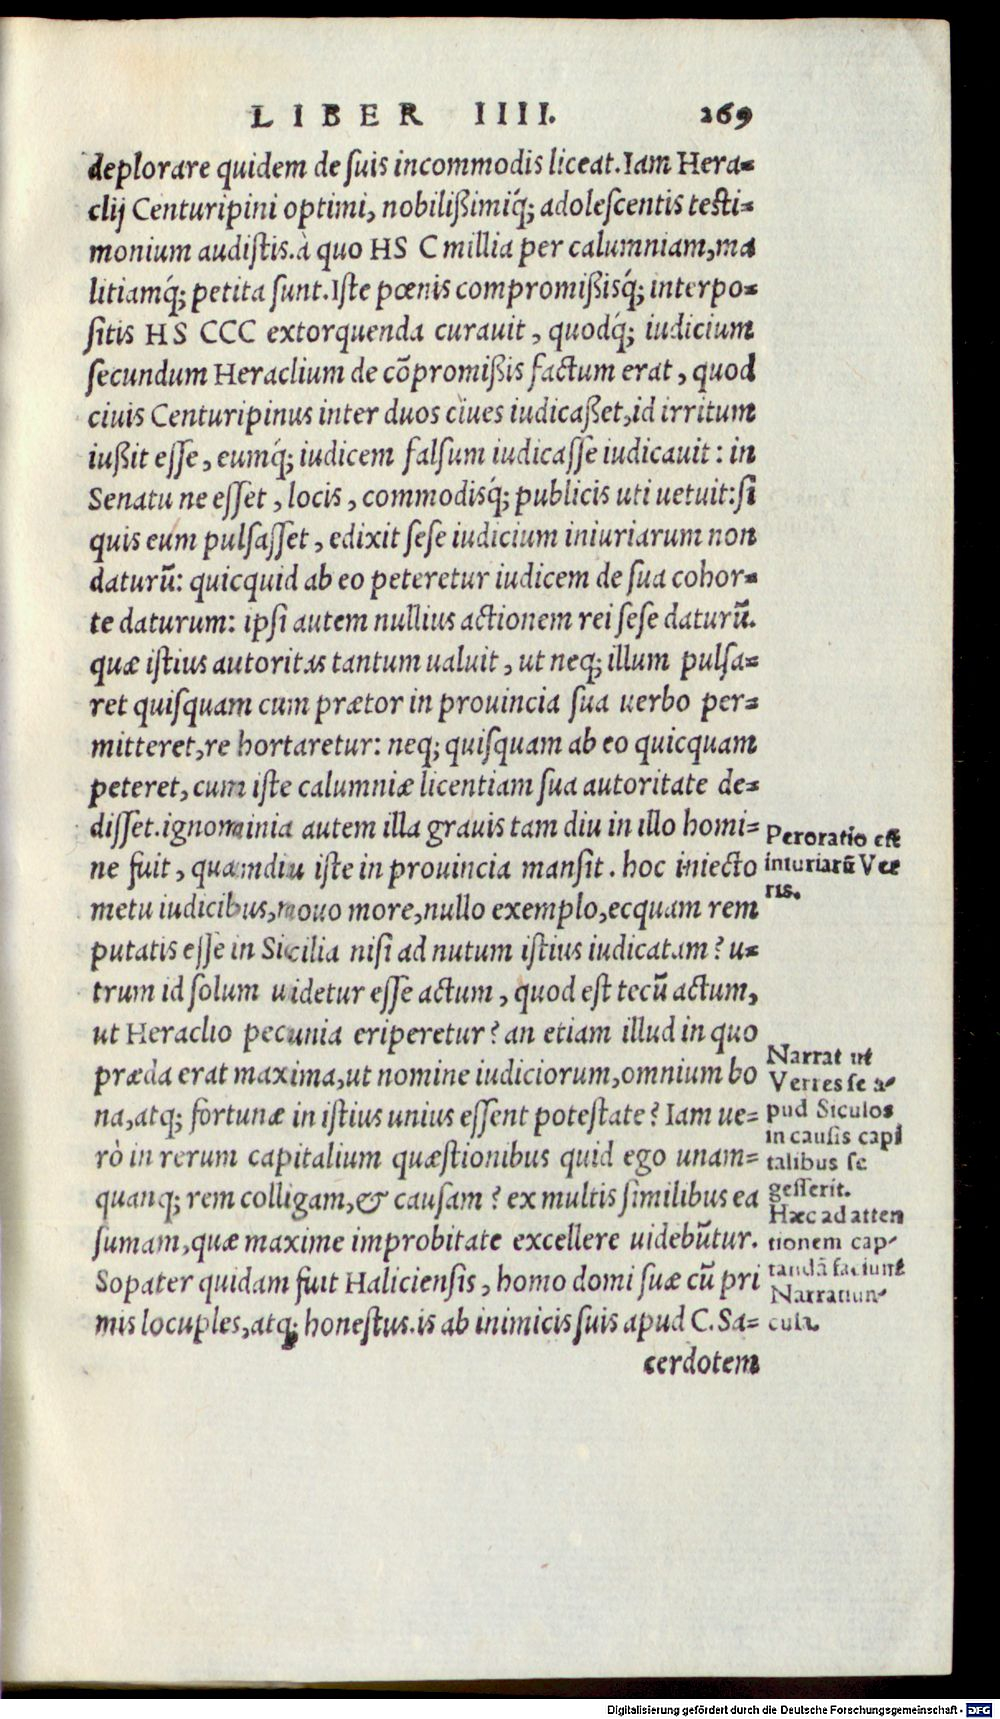 LIBER IIII. 269
deplorare quidem de ſuis incommodis liceat. Iam Hera-
clij Centuripini optimi, nobilißimiq́; adoleſcentis teſti-
monium audiſtis. à quo HS C millia per calumniam, ma
litiamq́; petita ſunt. Iſte pœnis compromißisq́; interpo-
ſitis HS CCC extorquenda curauit, quodq́; iudicium
ſecundum Heraclium de cõpromißis factum erat, quod
ciuis Centuripinus inter duos ciues iudicaßet, id irritum
iußit eſſe, eumq́; iudicem falſum iudicaſſe iudicauit: in
Senatu ne eſſet, locis, commodisq́; publicis uti uetuit: ſi
quis eum pulſaſſet, edixit ſeſe iudicium iniuriarum non
daturũ: quicquid ab eo peteretur iudicem de ſua cohor-
te daturum: ipſi autem nullius actionem rei ſeſe daturũ.
quæ iſtius autoritas tantum ualuit, ut neq; illum pulſa-
ret quiſquam cum prætor in prouincia ſua uerbo per-
mitteret, re hortaretur: neq; quiſquam ab eo quicquam
peteret, cum iſte calumniæ licentiam ſua autoritate de-
diſſet. ignominia autem illa grauis tam diu in illo homi-
ne fuit, quamdiu iſte in prouincia manſit. hoc iniecto
metu iudicibus, nouo more, nullo exemplo, ecquam rem
putatis eſſe in Sicilia niſi ad nutum iſtius iudicatam? u-
trum id ſolum uidetur eſſe actum, quod eſt tecũ actum,
ut Heraclio pecunia eriperetur? an etiam illud in quo
præda erat maxima, ut nomine iudiciorum, omnium bo
na, atq; fortunæ in iſtius unius eſſent poteſtate? Iam ue-
rò in rerum capitalium quæſtionibus quid ego unam-
quanq; rem colligam, & cauſam? ex multis ſimilibus ea
ſumam, quæ maxime improbitate excellere uidebũtur.
Sopater quidam fuit Halicienſis, homo domi ſuæ cũ pri
mis locuples, atq; honeſtus. is ab inimicis ſuis apud C. Sa-
cerdotem
Peroratio eſt
iniuriarũ Ver
ris.
Narrat ut
Verres ſe a-
pud Siculos
in cauſis capi
talibus ſe
geſſerit.
Hæc ad atten
tionem cap-
tandã faciunt
Narratiun-
cula.
Digitalisierung gefördert durch die Deutsche Forschungsgemeinschaft - DFG